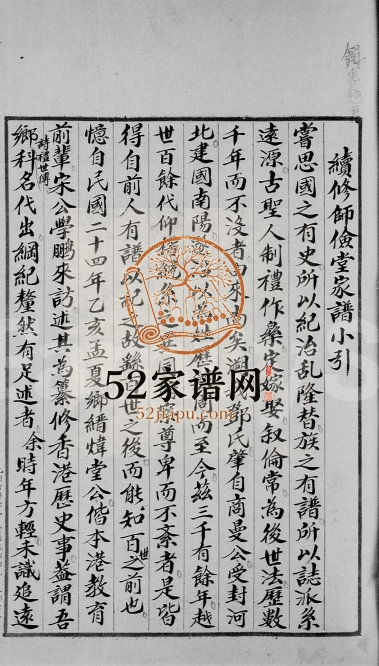 續修師儉堂家譜小引
嘗思國之有史所以紀治乱隆替族之有譜所以誌派系
遠源古聖人制禮作桑定嫁娶叙倫常為後世法歷數
千年而不没者由來尚矣溯我鄧氏肇自商曼公受封河
北建國南陽 以為姓歷 周而至今茲三千有餘年越
世百餘代仰 統系 之在 尊卑而不紊者是皆
得自前人有譜以紀之故繇百世之後而能知百世之前也
憶自民國二十四年乙亥孟夏鄉縉煒堂公偕本港教育
前輩宋公學鵬來訪述其為纂修香港歷史事益謂吾
鄉科名代出綱紀釐然有足述者余時年方輕未識追遠
詩禮世傳
52家谱网
52jiapu.com